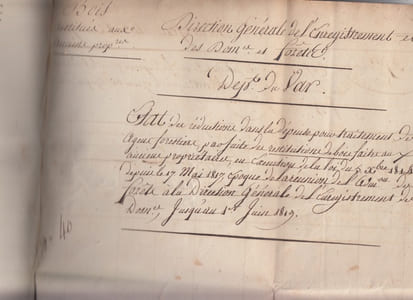 Bois
restitués aux
anciens prop.res
Direction Générale de l'Enregistrement
des Dom.es et forêts
Dép.t du Var.
Etat des réductions dans la dépense pour traitement des
Agens forestiers, par suite de restitutions de bois faites aux
anciens propriétaires, en exécution de la loi du 5 Xbre 1814
depuis le 17 Mai 1817 époque de la réunion de l'adm.on des
forêts à la Direction Générale de l'Enregistrement des
Dom.es, Jusqu'au 1er Juin 1819.